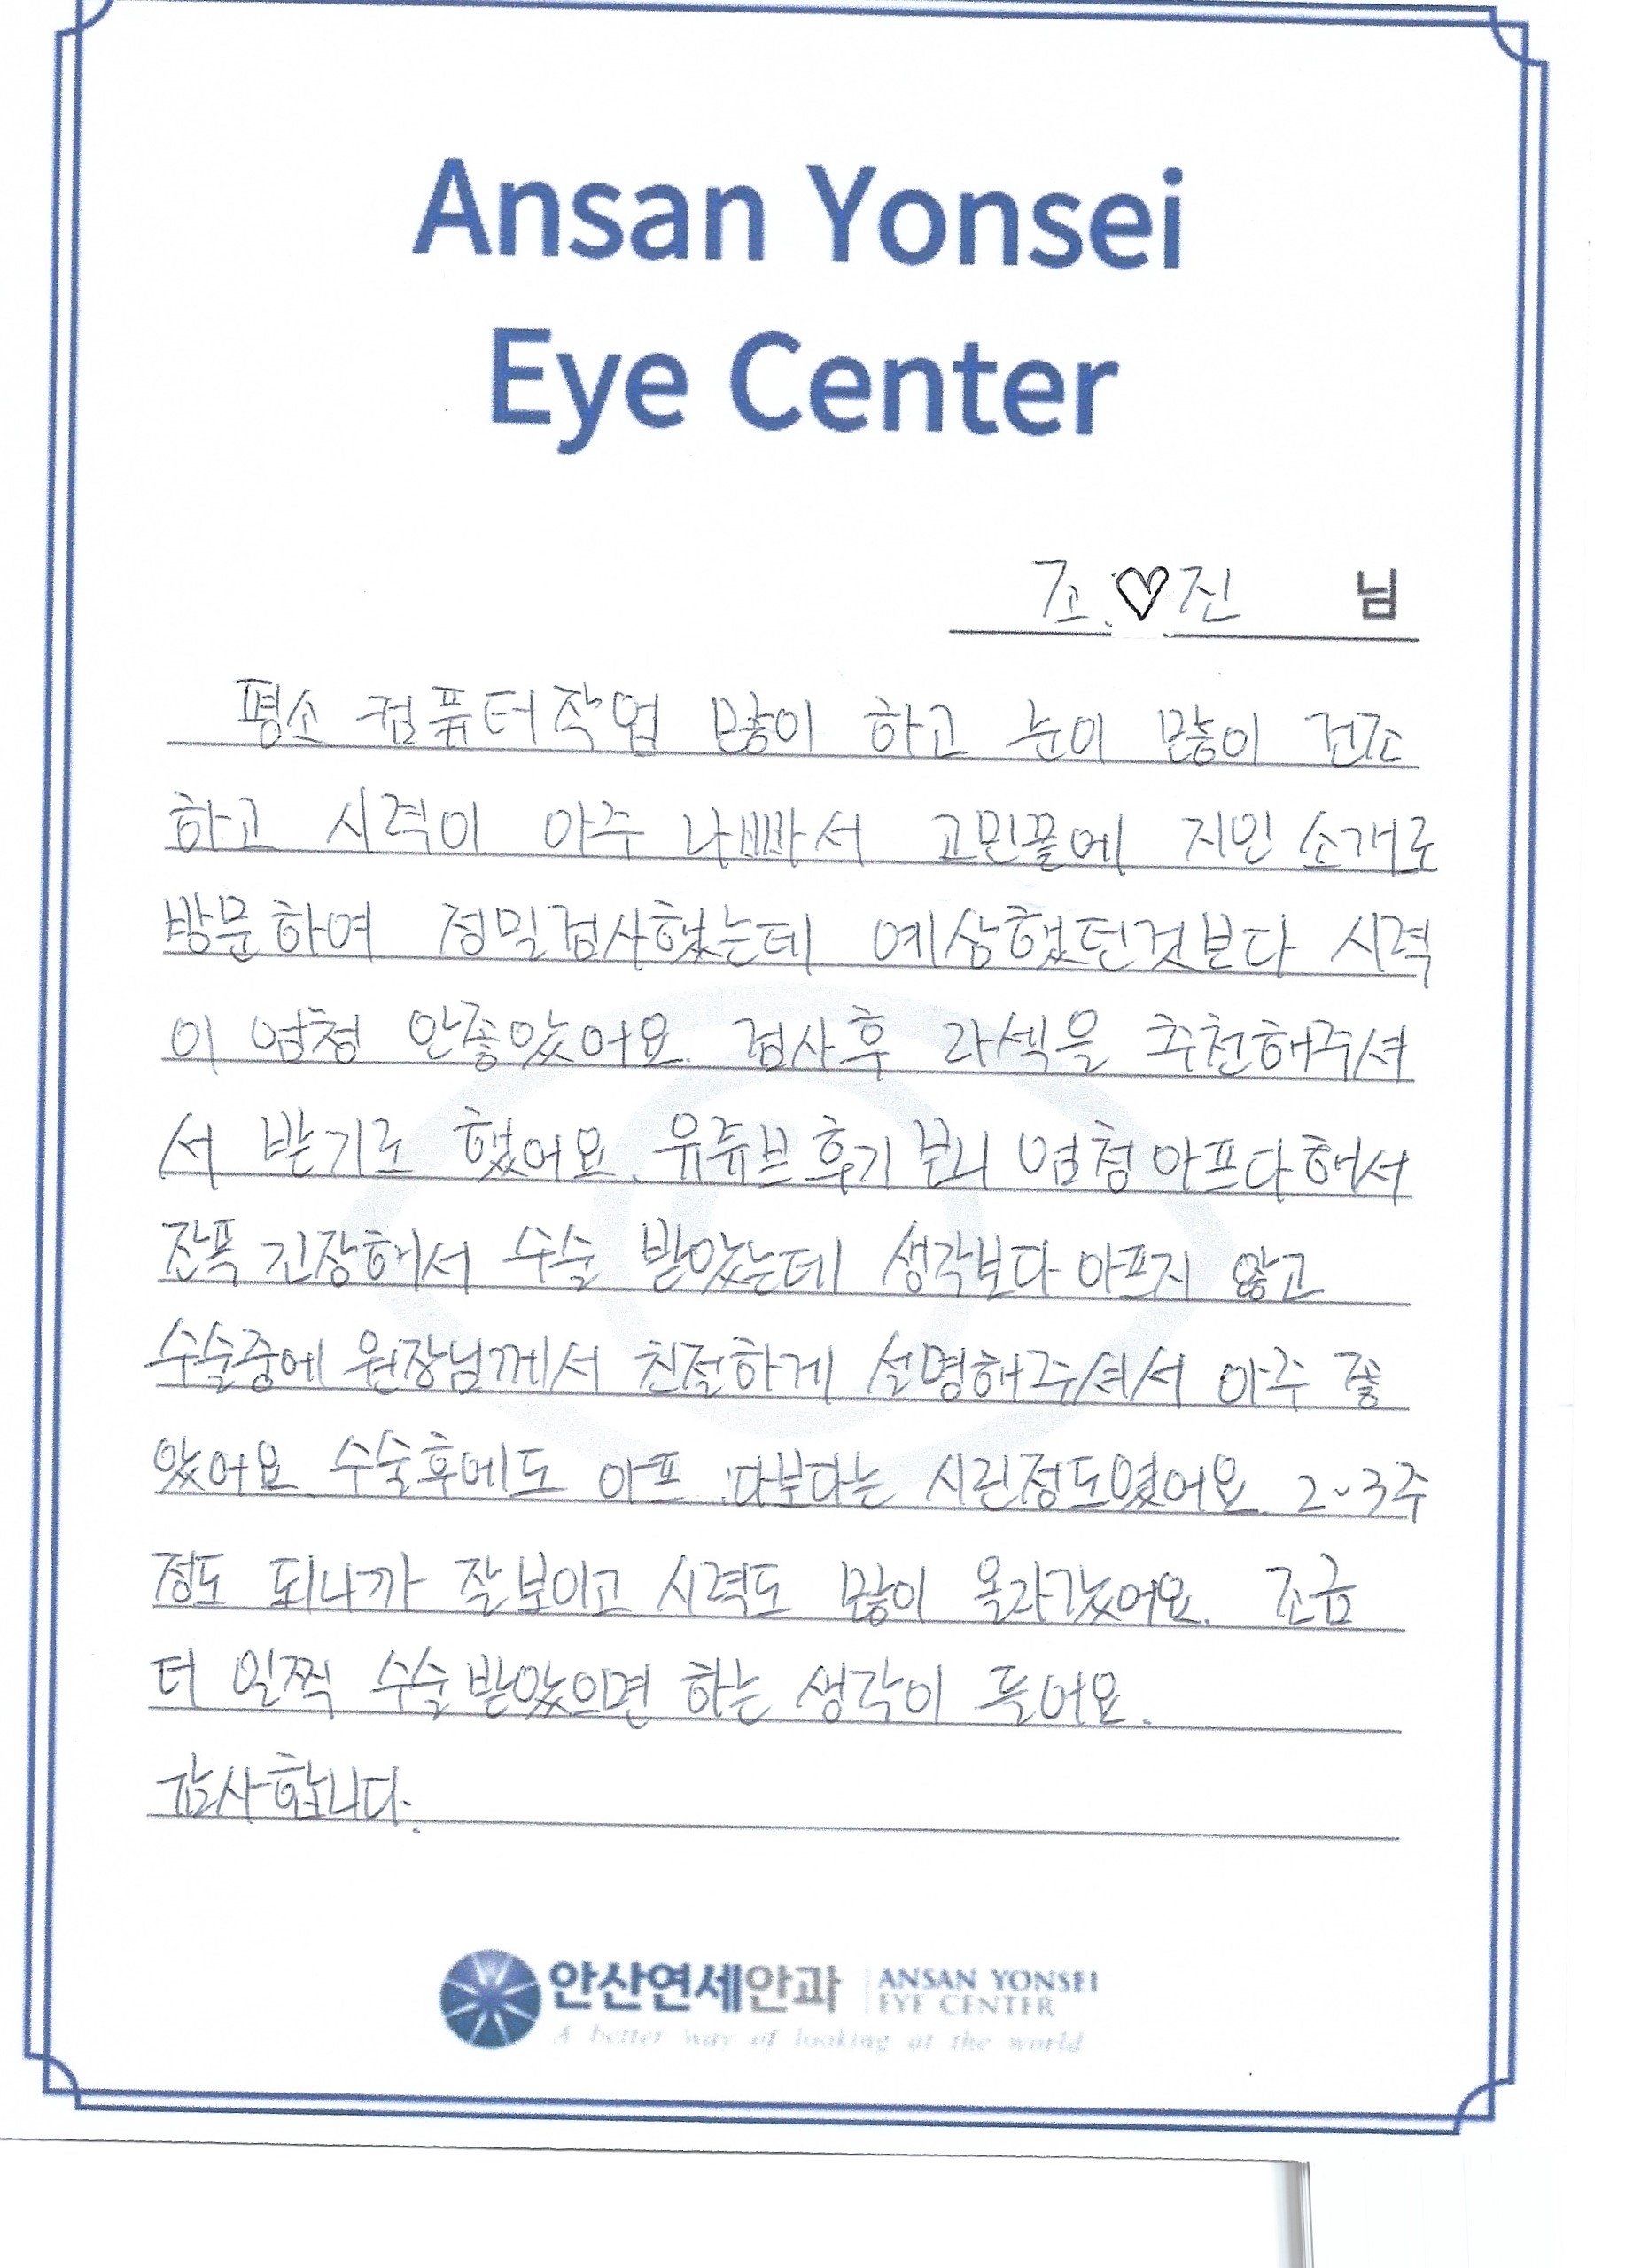 Ansan Yonsei
Eye Center
조♡진 님
평소 컴퓨터작업 많이 하고 눈이 많이 건조
하고 시력이 아주 나빠서 고민끝에 지인 소개로
방문하여 정밀검사했는데 예상했던것보다 시력
이 엄청 안좋았어요. 검사후 라섹을 추천해주셔
서 받기로 했어요. 유튜브 후기 보니 엄청 아프다해서
잔뜩 긴장해서 수술 받았는데 생각보다 아프지 않고
수술중에 원장님께서 친절하게 설명해주셔서 아주 좋
았어요. 수술후에도 아프다보다는 시린정도였어요. 2~3주
정도 되니까 잘보이고 시력도 많이 올라갔어요. 조금
더 일찍 수술받았으면 하는 생각이 들어요.
감사합니다.
안산연세안과 ANSAN YONSEI
EYE CENTER
A better way of looking at the world